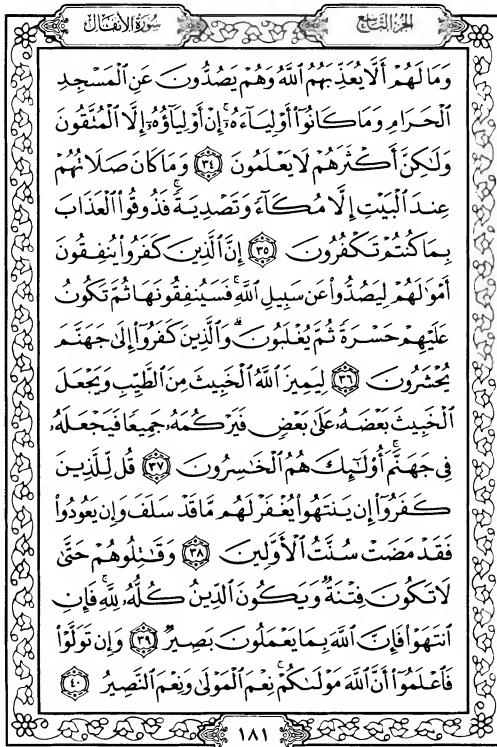 سورة الأنفال
الجزء التاسع
وَمَا لَهُمْ أَلَّا يُعَذِّبَهُمُ ٱللَّهُ وَهُمْ يَصُدُّونَ عَنِ ٱلْمَسْجِدِ
ٱلْحَرَامِ وَمَا كَانُوٓا۟ أَوْلِيَآءَهُۥٓ ۚ إِنْ أَوْلِيَآؤُهُۥٓ إِلَّا ٱلْمُتَّقُونَ
وَلَٰكِنَّ أَكْثَرَهُمْ لَا يَعْلَمُونَ ٣٤ وَمَا كَانَ صَلَاتُهُمْ
عِندَ ٱلْبَيْتِ إِلَّا مُكَآءً وَتَصْدِيَةً ۚ فَذُوقُوا۟ ٱلْعَذَابَ
بِمَا كُنتُمْ تَكْفُرُونَ ٣٥ إِنَّ ٱلَّذِينَ كَفَرُوا۟ يُنفِقُونَ
أَمْوَٰلَهُمْ لِيَصُدُّوا۟ عَن سَبِيلِ ٱللَّهِ ۚ فَسَيُنفِقُونَهَا ثُمَّ تَكُونُ
عَلَيْهِمْ حَسْرَةً ثُمَّ يُغْلَبُونَ ۗ وَٱلَّذِينَ كَفَرُوٓا۟ إِلَىٰ جَهَنَّمَ
يُحْشَرُونَ ٣٦ لِيَمِيزَ ٱللَّهُ ٱلْخَبِيثَ مِنَ ٱلطَّيِّبِ وَيَجْعَلَ
ٱلْخَبِيثَ بَعْضَهُۥ عَلَىٰ بَعْضٍ فَيَرْكُمَهُۥ جَمِيعًا فَيَجْعَلَهُۥ
فِى جَهَنَّمَ ۚ أُو۟لَٰٓئِكَ هُمُ ٱلْخَٰسِرُونَ ٣٧ قُل لِّلَّذِينَ
كَفَرُوٓا۟ إِن يَنتَهُوا۟ يُغْفَرْ لَهُم مَّا قَدْ سَلَفَ وَإِن يَعُودُوا۟
فَقَدْ مَضَتْ سُنَّتُ ٱلْأَوَّلِينَ ٣٨ وَقَٰتِلُوهُمْ حَتَّىٰ
لَا تَكُونَ فِتْنَةٌ وَيَكُونَ ٱلدِّينُ كُلُّهُۥ لِلَّهِ ۚ فَإِنِ
ٱنتَهَوْا۟ فَإِنَّ ٱللَّهَ بِمَا يَعْمَلُونَ بَصِيرٌ ٣٩ وَإِن تَوَلَّوْا۟
فَٱعْلَمُوٓا۟ أَنَّ ٱللَّهَ مَوْلَىٰكُمْ ۚ نِعْمَ ٱلْمَوْلَىٰ وَنِعْمَ ٱلنَّصِيرُ ٤٠
١٨١